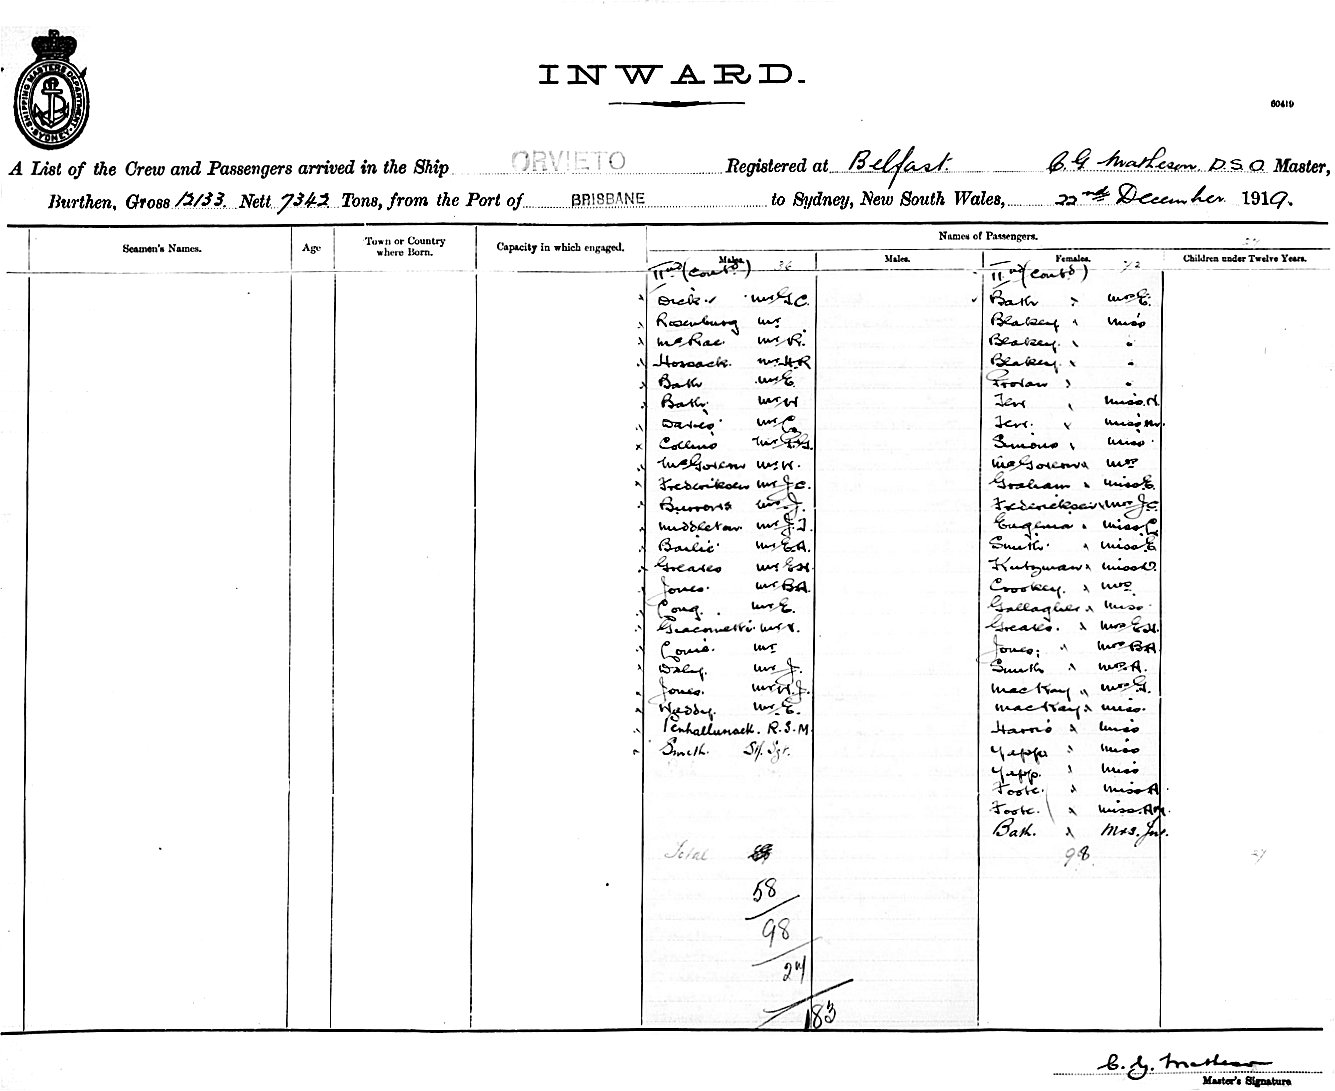 SHIPPING MASTERS DEPARTMENT · SYDNEY ·
INWARD.
60419
A List of the Crew and Passengers arrived in the Ship ORVIETO Registered at Belfast. C G Matheson. D.S.O Master,
Burthen, Gross 12133. Nett 7342 Tons, from the Port of BRISBANE to Sydney, New South Wales, 22nd December 1919.
Seamen's Names. Age Town or Country where Born. Capacity in which engaged. Names of Passengers.
Males. Males. Females. Children under Twelve Years.
IInd (Contd) 36 IInd (Contd) 72
Dick Mr G.C. Bath " Mrs E.
Rosenburg Mr Blakey " Miss
McRae. Mr R. Blakey. " "
Hossack. Mr H.R Blakey " "
Bath Mr E. "
Bath. Mr W Terr " Miss. N.
Davies Mr C. Terr. " Miss
Collins Mr Simons " Miss
McGovern Mr W. McGovern " Mrs
Frederiksen Mr J.C. Graham " Miss E.
Burrows Mr J. Frederiksen " Mrs J.C.
Middleton Mr J.T. Eugenia " Miss C.
Bailie Mr E.A. Smith " Miss E.
Greates Mr E.H. Kutzman " Miss D.
Jones. Mr B.A. Crookey. " Mrs
Mr E. Gallagher " Miss
Giacometti Mr V. Greates. " Mrs E.H.
Mr Jones; " Mrs B.A.
Daley. Mr J. Smith " Mrs A.
Jones. Mr W.J. MacKay " Mrs G.
Waddy. Mr E. MacKay " Miss.
Penhallunack. R.S.M. Harris " Miss
Smith. St. Sgt. Yepp " Miss
Yepp. " Miss
Foote. " Miss A
Foote. " Miss. Am.
Bath. " Mrs. Jn.
Total 98 24
58
98
27
183
C. G. Matheson
Master's Signature